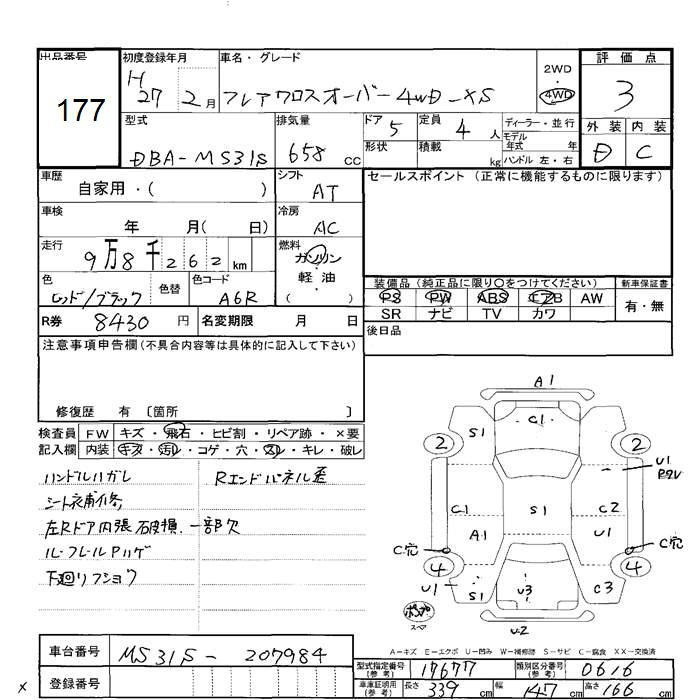 出品番号
177
初度登録年月
H
27 2月
車名・グレード
フレアクロスオーバー 4WD-XS
2WD
・
4WD
評価点
3
外装 内装
D C
型式
DBA-MS31S
排気量
658 cc
ドア 5
形状
定員 4 人
積載 kg
ディーラー・並行
モデル
年式 年
ハンドル 左・右
車歴
自家用・( )
シフト
AT
セールスポイント (正常に機能するものに限ります)
車検
年 月( 日)
冷房
AC
走行
9万8千262km
燃料
ガソリン
・
軽・油
( )
色
レッド/ブラック
色替
色コード
A6R
装備品(純正品に限り○をつけてください)
PS PW ABS エアB AW
SR ナビ TV カワ
新車保証書
有・無
R券 8430 円
名変期限 月 日
後日品
注意事項申告欄(不具合内容等は具体的に記入して下さい)
修復歴 有 〔箇所 〕
検査員 FW キズ・飛石・ヒビ割・リペア跡・×要
記入欄 内装 キズ・汚レ・コゲ・穴・スレ・キレ・破レ
ハンドルハガレ
シート補修
左Rドア内張破損 一部欠
ルーフレールPハゲ
下廻りフショク
Rエンドパネル歪
A1
C1
S1
2 2
U1
Pクレ
C1 S1 C2
A1 U1
C穴 C穴
4 4
U1
S1 U3 C3
ポンプ
スペア
U2
A-キズ E-エクボ U-凹み W-補修跡 S-サビ C-腐食 XX-交換済
車台番号 MS31S-207984
登録番号
x
型式指定番号
(参考)
17677
類別区分番号
(参考)
0616
車庫証明用
(参考)
長さ 339 cm 幅 147 cm 高さ 166 cm